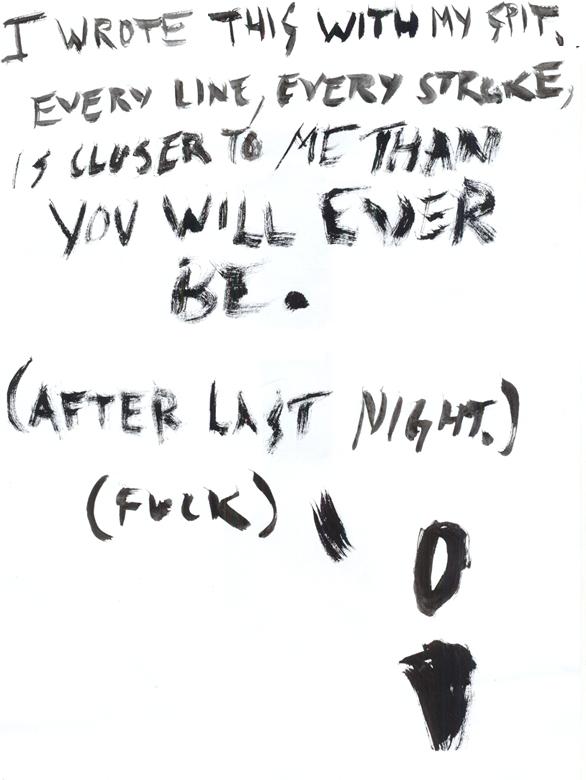 I WROTE THIS WITH MY SPIT.
EVERY LINE, EVERY STROKE,
IS CLOSER TO ME THAN
YOU WILL EVER
BE.
(AFTER LAST NIGHT.)
(FUCK)